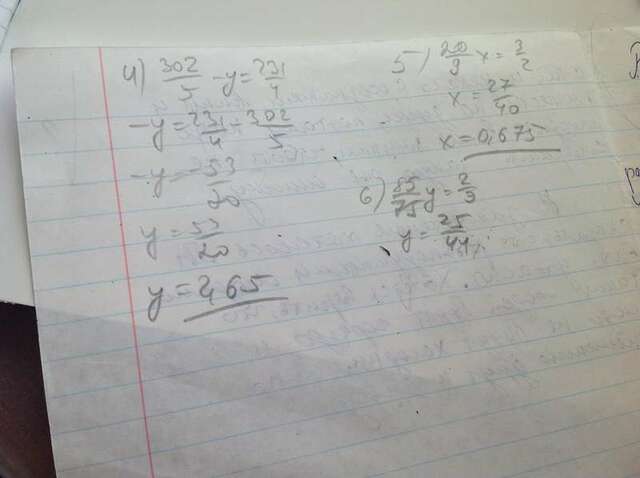 4) 302/5 - y = 231/4
-y = 231/4 - 302/5
-y = -53/20
y = 53/20
y = 2,65
5) 20/9 x = 3/2
x = 27/40
x = 0,675
6) y = 2/3
y = 25/44